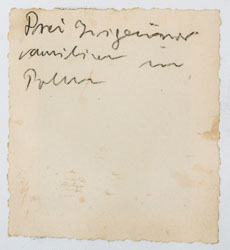 Drei Zigeuner
familien in
Polen